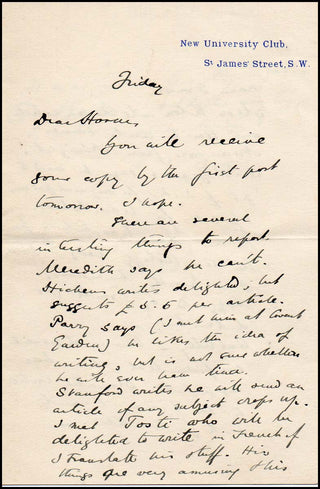 New University Club,
St James' Street, S.W.
Friday
Dear
You will receive
your copy by the first post
tomorrow. I hope.
There are several
interesting things to report.
Meredith says he can't.
Hichens writes delighted, but
suggests £5.5 per article.
Parry says (I met him at Covent
Garden) he likes the idea of
writing, but is not sure whether
he will ever have time.
Stanford writes he will send an
article if any subject crops up.
I met Tosti who will be
delighted to write in French if
I translate his stuff. His
things are very amusing this